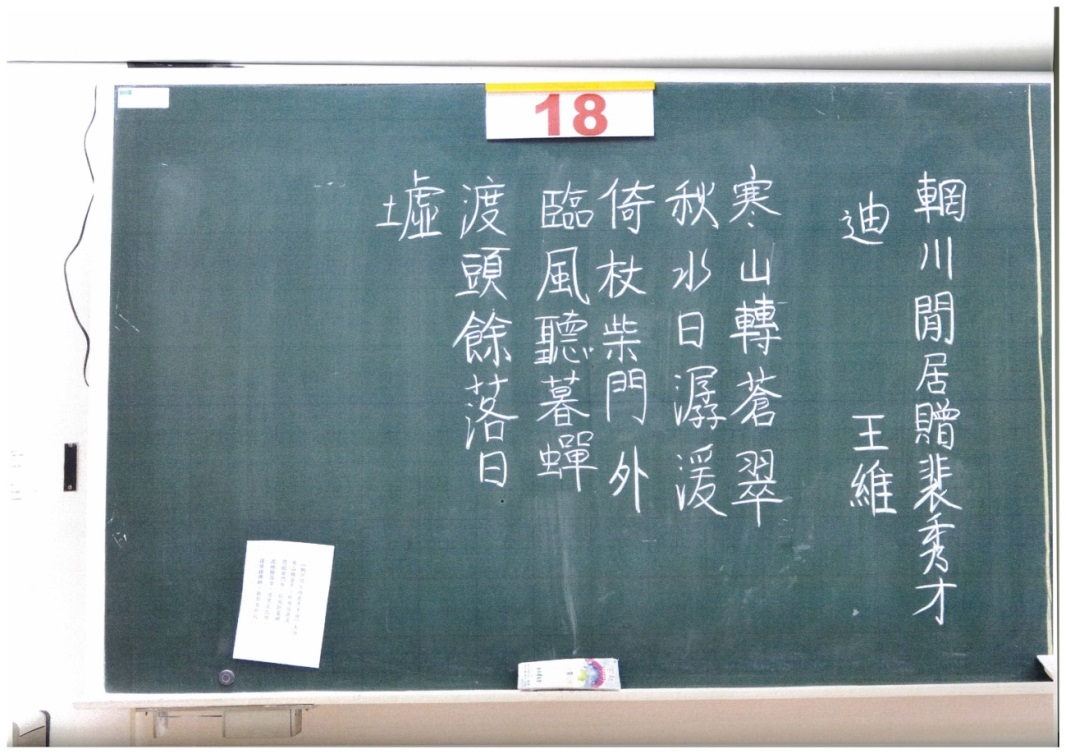 18
輞川閒居贈裴秀才
迪 王維
寒山轉蒼翠
秋水日潺湲
倚杖柴門外
臨風聽暮蟬
渡頭餘落日
墟